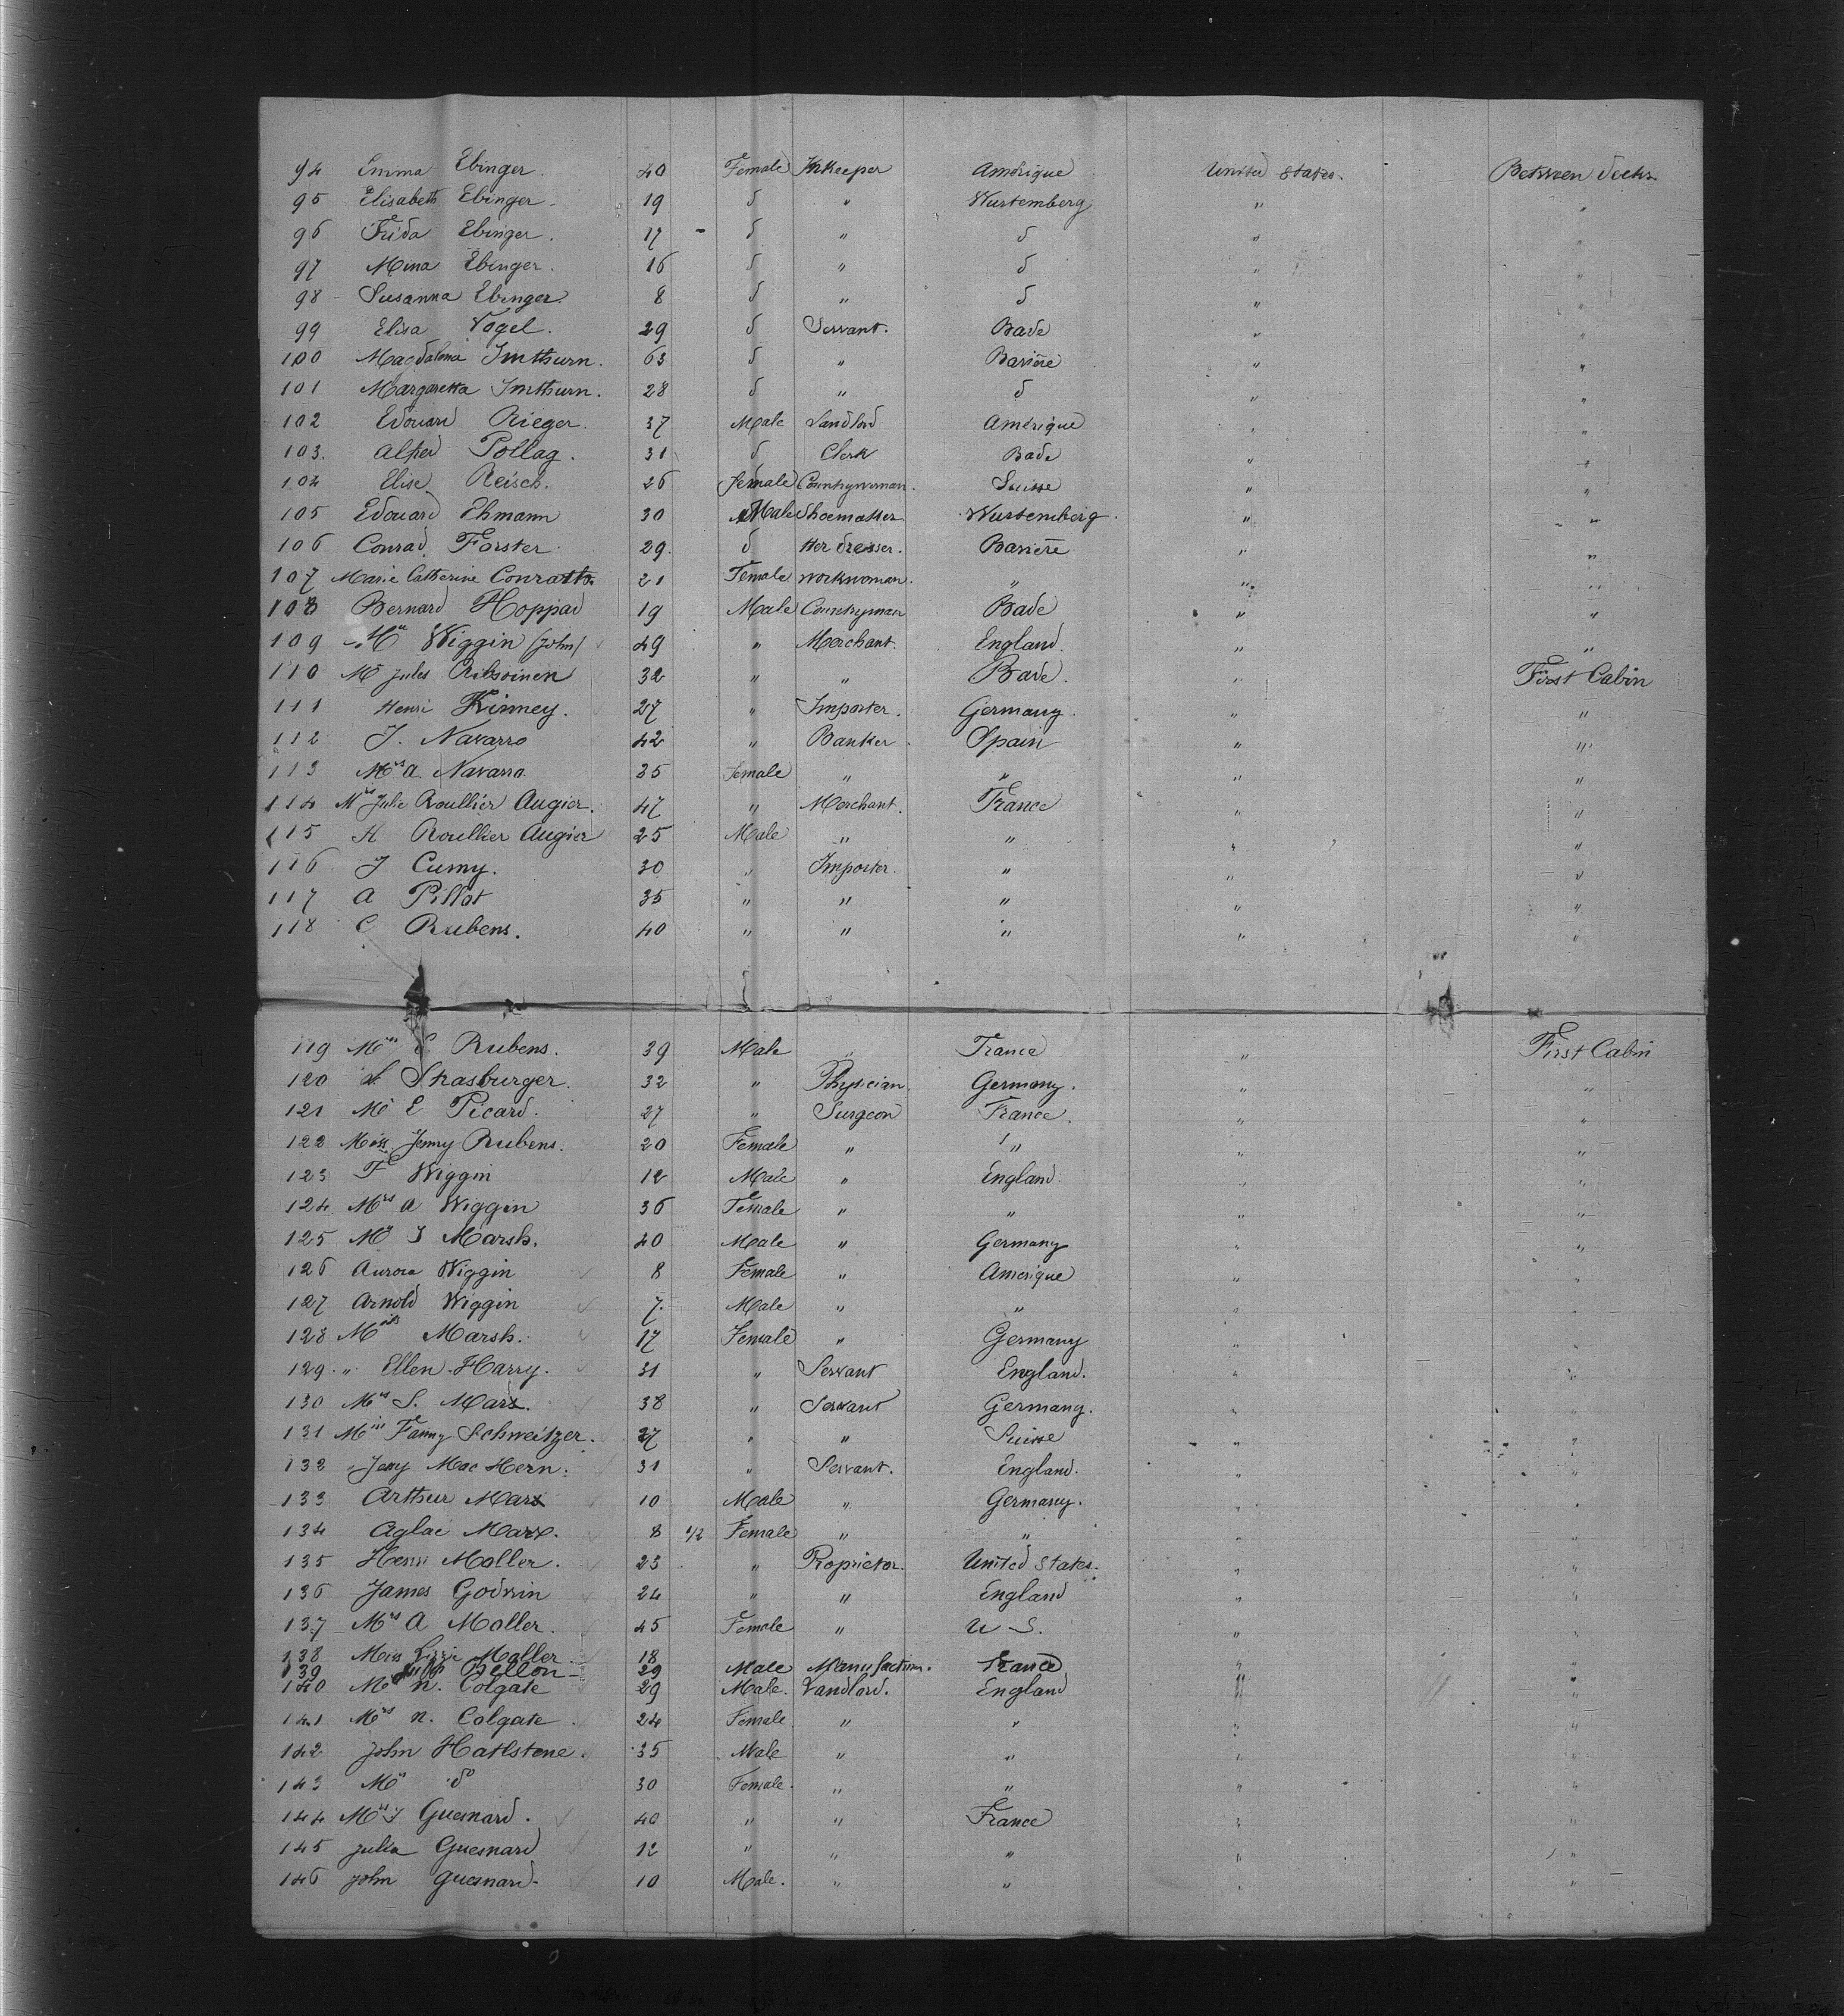 94 Emma Ebinger. 40 Female Inkeeper Amérique United States. Between decks
95 Elisabeth Ebinger. 19 d " Wurtemberg " "
96 Frida Ebinger. 17 d " d " "
97 Mina Ebinger. 16 d " d " "
98 Susanna Ebinger. 8 d " d " "
99 Elisa Vogel. 29 d Servant. Bade " "
100 Magdalena Imthurn. 63 d " Bavière " "
101 Margaretta Imthurn. 28 d " d " "
102 Edouard Rieger. 37 Male Landlord Amérique " "
103. Alfred Pollag. 31 d Clerk Bade " "
104 Elise Reisch. 26 Female Countrywoman. Suisse " "
105 Edouard Ehmann 30 Male Shoemaker Wurtemberg. " "
106 Conrad Forster 29. d Her dresser. Bavière " "
107 Marie Catherine Conrath. 21 Female workwoman. " " "
108 Bernard Hoppad 19 Male Countryman Bade " "
109 Mr Wiggin (John) 49 " Merchant. England. " "
110 Mr Jules 32 " " Bade. " First Cabin
111 Henri Kinney. 27 " Importer. Germany. " "
112 J. Navarro 42 " Banker Spain " "
113 Mrs A. Navarro. 35 Female " " " "
114 Mrs Julie Roullier Augier. 47 " Merchant. France " "
115 H Roullier Augier 25 Male " " " "
116 J Cumy. 30 " Importer. " " "
117 A Pillot 35 " " " " "
118 C Rubens. 40 " " " " "
119 Mrs C. Rubens. 39 Male " France " First Cabin
120 Strasburger. 32 " Physician. Germany. " "
121 Mr E Picard. 27 " Surgeon France. " "
122 Miss Jenny Rubens. 20 Female " " " "
123 F Wiggin 12 Male " England " "
124 Mrs A Wiggin 36 Female " " " "
125 Mr J Marsh. 40 Male " Germany " "
126 Aurora Wiggin 8 Female " Amerique " "
127 Arnold Wiggin 7. Male " " " "
128 Miss Marsh. 17 Female " Germany " "
129. " Ellen Harry. 31 " Servant England. " "
130 Mrs S. Marx. 38 " Servant Germany. " "
131 Miss Fanny Schweitzer. 27 " " Suisse " "
132 " Jenny Mac Hern. 31 " Servant. England. " "
133 Arthur Marx 10 Male " Germany. " "
134 Aglae Marx. 8 1/2 Female " " " "
135 Henri Moller. 23 " Proprietor. United States. " "
136 James Godwin 24 " " England " "
137 Mrs A Moller. 45 Female " U S. " "
138 Miss Lizzie Moller 18
139 Bellon 29 Male Manufactur. France " "
140 Mr N. Colgate 29 Male. Landlord. England " "
141 Mrs N. Colgate 24 Female " " " "
142 John Hatlstene. 35 Male " " " "
143 Mrs do 30 Female. " " " "
144 Mrs J Guesnard. 40 " " France " "
145 Julia Guesnard 12 " " " " "
146 John Guesnard. 10 Male. " " " "